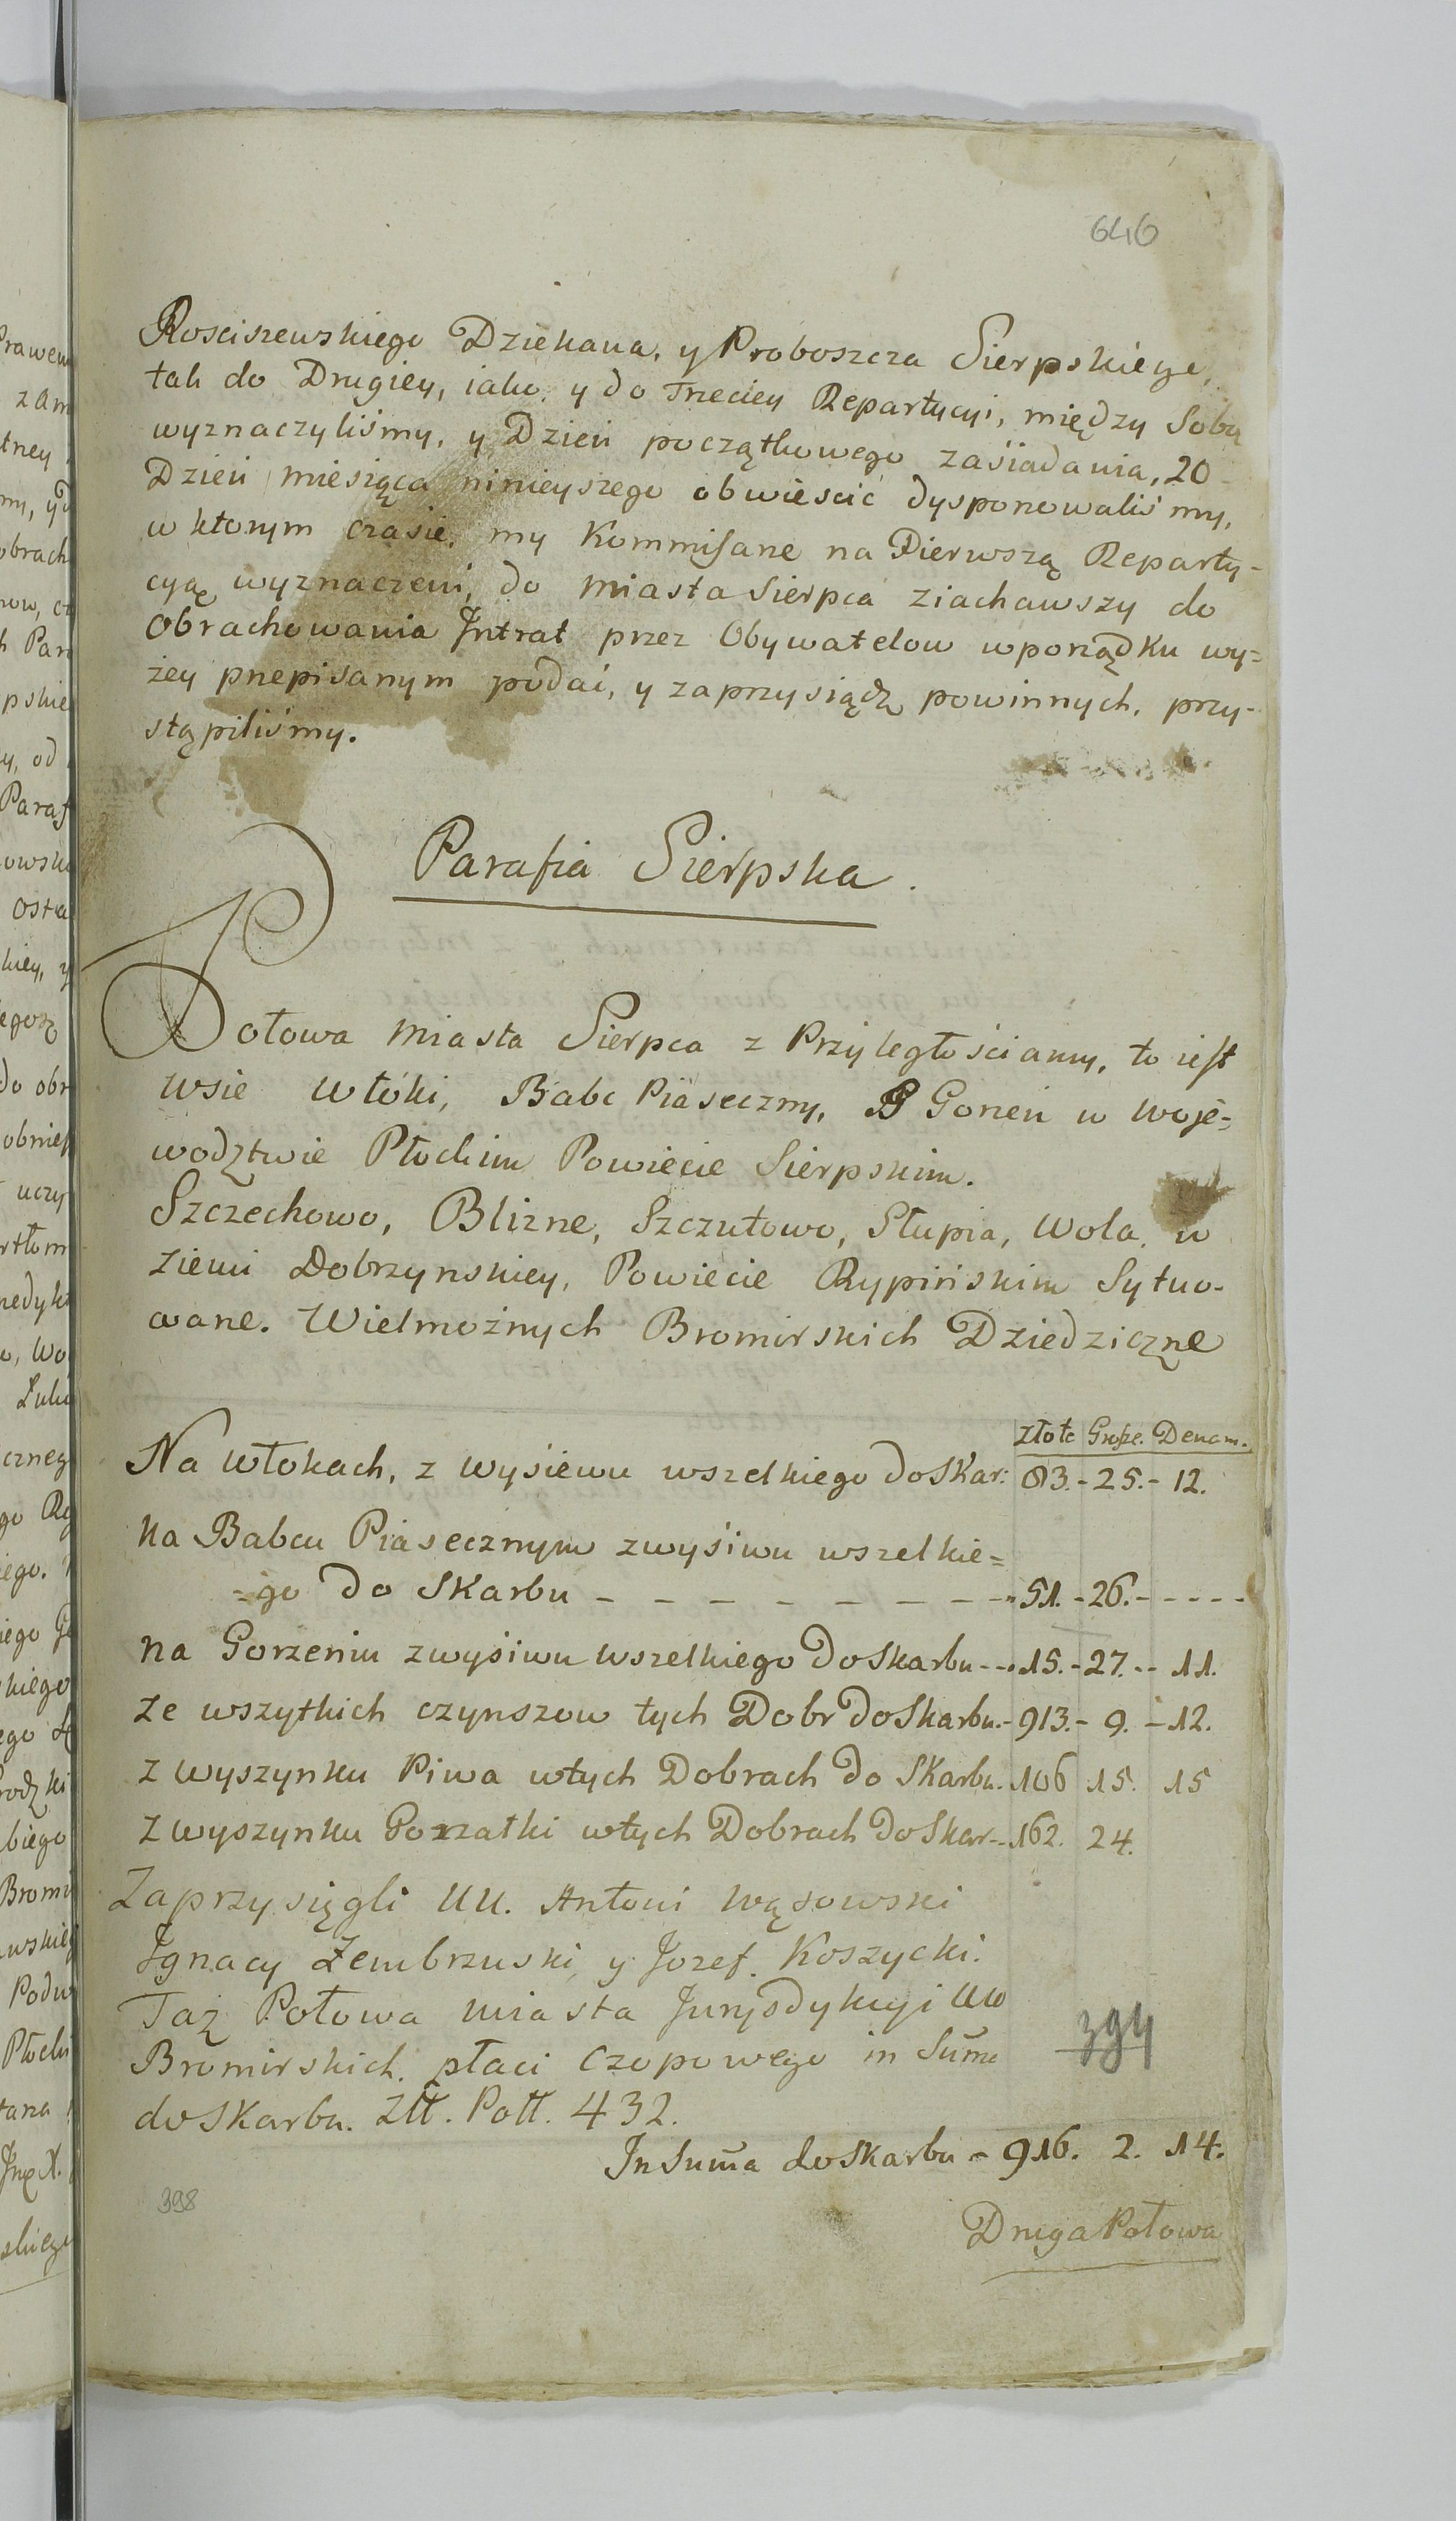 646
Rosciszewskiego Dziekana, y Proboszcza Sierpskiego,
tak do Drugiey, iako, y do Trzeciey Repartycyi, między Sobą
wyznaczyliśmy, y Dzień początkowego zasiadania, 20
Dzień miesiąca ninieyszego obwieścić dysponowaliśmy,
w ktorym czasie, my Kommisarze na Pierwszą Reparty-
cyą wyznaczeni, do miasta Sierpca ziachawszy do
Obrachowania Jntrat przez Obywatelow w porządku wy=
żey przepisanym podać, y zaprzysiądz powinnych, przy-
stąpiliśmy.
Parafia Sierpska.
Połowa Miasta Sierpca z Przyległościamy, to iest
wsie Włóki, Babc Piaseczny, Gorzeń w Woje=
wodztwie Płockim Powiecie Sierpskim.
Szczechowo, Blizne, Szczutowo, Słupia, Wola, w
Ziemi Dobrzynskiey, Powiecie Rypińskim Sytuo-
wane. Wielmożnych Bromirskich Dziedziczne
Złote Grosze. Denam.
Na Włokach, z wysiewu wszelkiego do Skar: 83.-25.-12.
Na Babcu Piasecznym z wysiwu wszelkie=
=go do Skarbu - - - - - - - - 51.-26.- - - - -
na Gorzeniu z wysiwu wszelkiego do Skarbu - - 15.-27.-- 11.
Ze wszytkich czynszow tych Dobr do Skarbu.- 913.- 9. -12.
Z wyszynku Piwa w tych Dobrach do Skarbu. 106 15. 15
Z wyszynku Gorzałki w tych Dobrach do Skar-- 162. 24.
Zaprzysięgli UU. Antoni Wąsowski
Jgnacy Zembrzuski, y Jozef Koszycki.
Taż Połowa miasta Jurysdykcyi UW
Bromirskich. płaci Czopowego in Suma
do Skarbu. Złł. Poll. 432.
394
Jn Suma do Skarbu - 916. 2. 14.
398
Druga Połowa